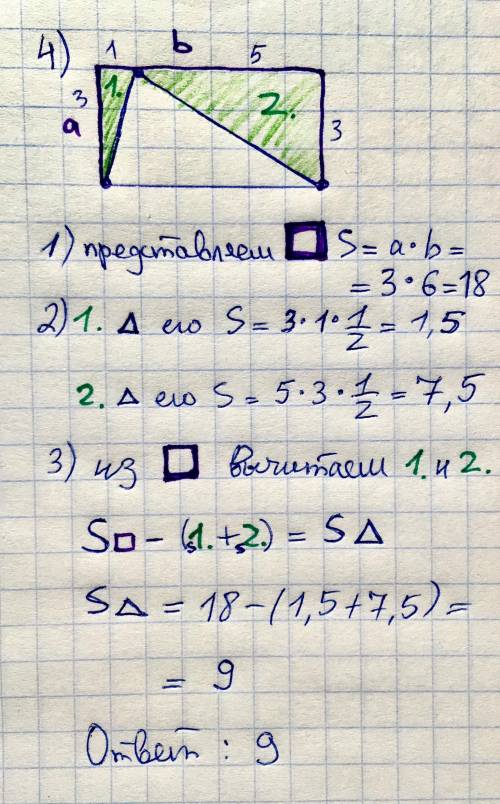 4)
1 b 5
3 1. 2. 3
a
1) представляем □ S = a · b =
= 3 · 6 = 18
2) 1. Δ его S = 3 · 1 · 1/2 = 1,5
2. Δ его S = 5 · 3 · 1/2 = 7,5
3) из □ вычитаем 1. и 2.
S□ - (S1. + S2.) = SΔ
SΔ = 18 - (1,5 + 7,5) =
= 9
Ответ : 9